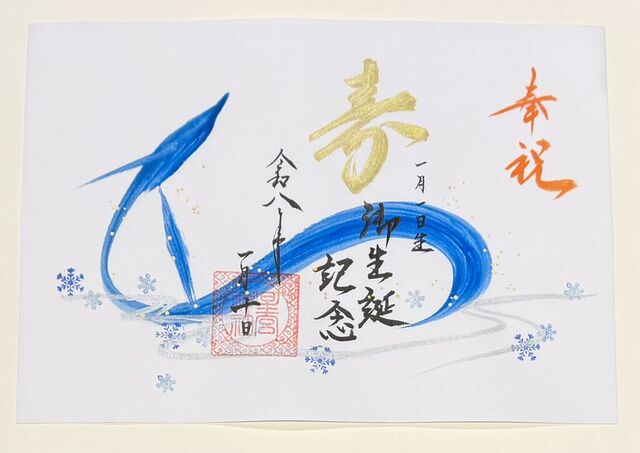 奉祝
寿
一月一日生
御生誕
記念
令和八年
一月十日